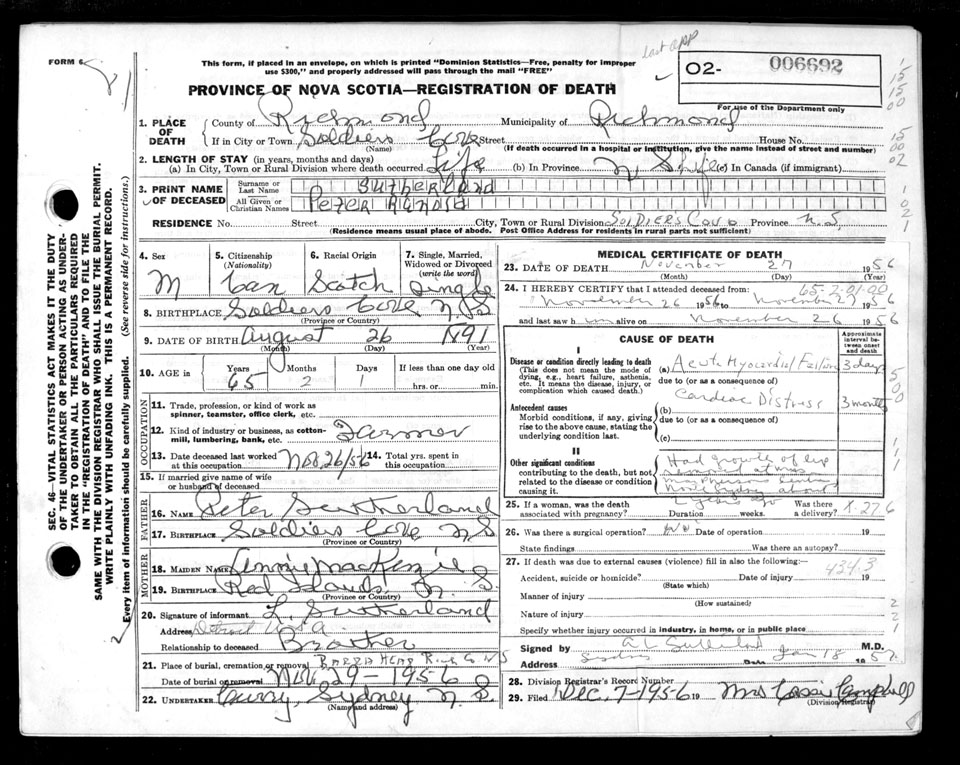 FORM 6
last app
This form, if placed in an envelope, on which is printed "Dominion Statistics—Free, penalty for improper
use $300," and properly addressed will pass through the mail "FREE"
02- 006692
For use of the Department only
PROVINCE OF NOVA SCOTIA—REGISTRATION OF DEATH
1. PLACE OF DEATH
County of Richmond Municipality of Richmond
If in City or Town Soldiers Cove Street House No.
(Name) (If death occurred in a hospital or institution, give the name instead of street and number)
2. LENGTH OF STAY (in years, months and days)
(a) In City, Town or Rural Division where death occurred Life (b) In Province N S Life (c) In Canada (if immigrant)
3. PRINT NAME OF DECEASED
Surname or Last Name SUTHERLAND
All Given or Christian Names PETER
RESIDENCE No. Street City, Town or Rural Division SOLDIERS COVE Province N.S.
(Residence means usual place of abode. Post Office Address for residents in rural parts not sufficient)
4. Sex M
5. Citizenship (Nationality) Can
6. Racial Origin Scotch
7. Single, Married, Widowed or Divorced (write the word) Single
8. BIRTHPLACE Soldiers Cove N.S
(Province or Country)
9. DATE OF BIRTH August 26 1891
(Month) (Day) (Year)
10. AGE in Years Months Days If less than one day old
65 2 1 hrs. or min.
OCCUPATION
11. Trade, profession, or kind of work as spinner, teamster, office clerk, etc.
12. Kind of industry or business, as cotton-mill, lumbering, bank, etc. Farmer
13. Date deceased last worked at this occupation Nov 26/56 14. Total yrs. spent in this occupation
15. If married give name of wife or husband of deceased
FATHER
16. NAME Peter Sutherland
17. BIRTHPLACE Soldiers Cove N S
(Province or Country)
MOTHER
18. MAIDEN NAME Annie MacKenzie
19. BIRTHPLACE Red Islands N. S.
(Province or Country)
20. Signature of informant L. Sutherland
Address Detroit U.S.A.
Relationship to deceased Brother
21. Place of burial, cremation or removal BARRA HEAD RICH Co NS
Date of burial or removal Nov. 29-1956
22. UNDERTAKER Curry, Sydney N. S.
(Name and address)
MEDICAL CERTIFICATE OF DEATH
23. DATE OF DEATH November 27 1956
(Month) (Day) (Year)
65-2-01-00
24. I HEREBY CERTIFY that I attended deceased from:
November 26 1956 to November 27 1956
and last saw him alive on November 26 1956
CAUSE OF DEATH
Approximate interval between onset and death
I
Disease or condition directly leading to death
(This does not mean the mode of dying, e.g., heart failure, asthenia, etc. It means the disease, injury, or complication which caused death.)
(a) Acute Myocardial Failure 3 days
due to (or as a consequence of)
Cardiac Distress 3 months
Antecedent causes
Morbid conditions, if any, giving rise to the above cause, stating the underlying condition last.
(b)
due to (or as a consequence of)
(c)
II
Other significant conditions
contributing to the death, but not related to the disease or condition causing it.
Had growth of lip
removed at
about
2 years ago
25. If a woman, was the death associated with pregnancy? Duration weeks. Was there a delivery?
X.27.6
26. Was there a surgical operation? No Date of operation 19
State findings Was there an autopsy?
27. If death was due to external causes (violence) fill in also the following:—
434.3
Accident, suicide or homicide? Date of injury 19
(State which)
Manner of injury
(How sustained)
Nature of injury
Specify whether injury occurred in industry, in home, or in public place
Signed by A L Sutherland M.D.
Address Sydney Date Jan 18 1957
28. Division Registrar's Record Number
29. Filed Dec. 7-1956 19 Mrs Cassie Campbell
(Division Registrar)
SEC. 46—VITAL STATISTICS ACT MAKES IT THE DUTY
OF THE UNDERTAKER OR PERSON ACTING AS UNDER-
TAKER TO OBTAIN ALL THE PARTICULARS REQUIRED
IN THE "REGISTRATION OF DEATH" AND TO FILE THE
SAME WITH THE DIVISION REGISTRAR WHO SHALL ISSUE THE BURIAL PERMIT.
WRITE PLAINLY WITH UNFADING INK. THIS IS A PERMANENT RECORD.
Every item of information should be carefully supplied. (See reverse side for instructions.)